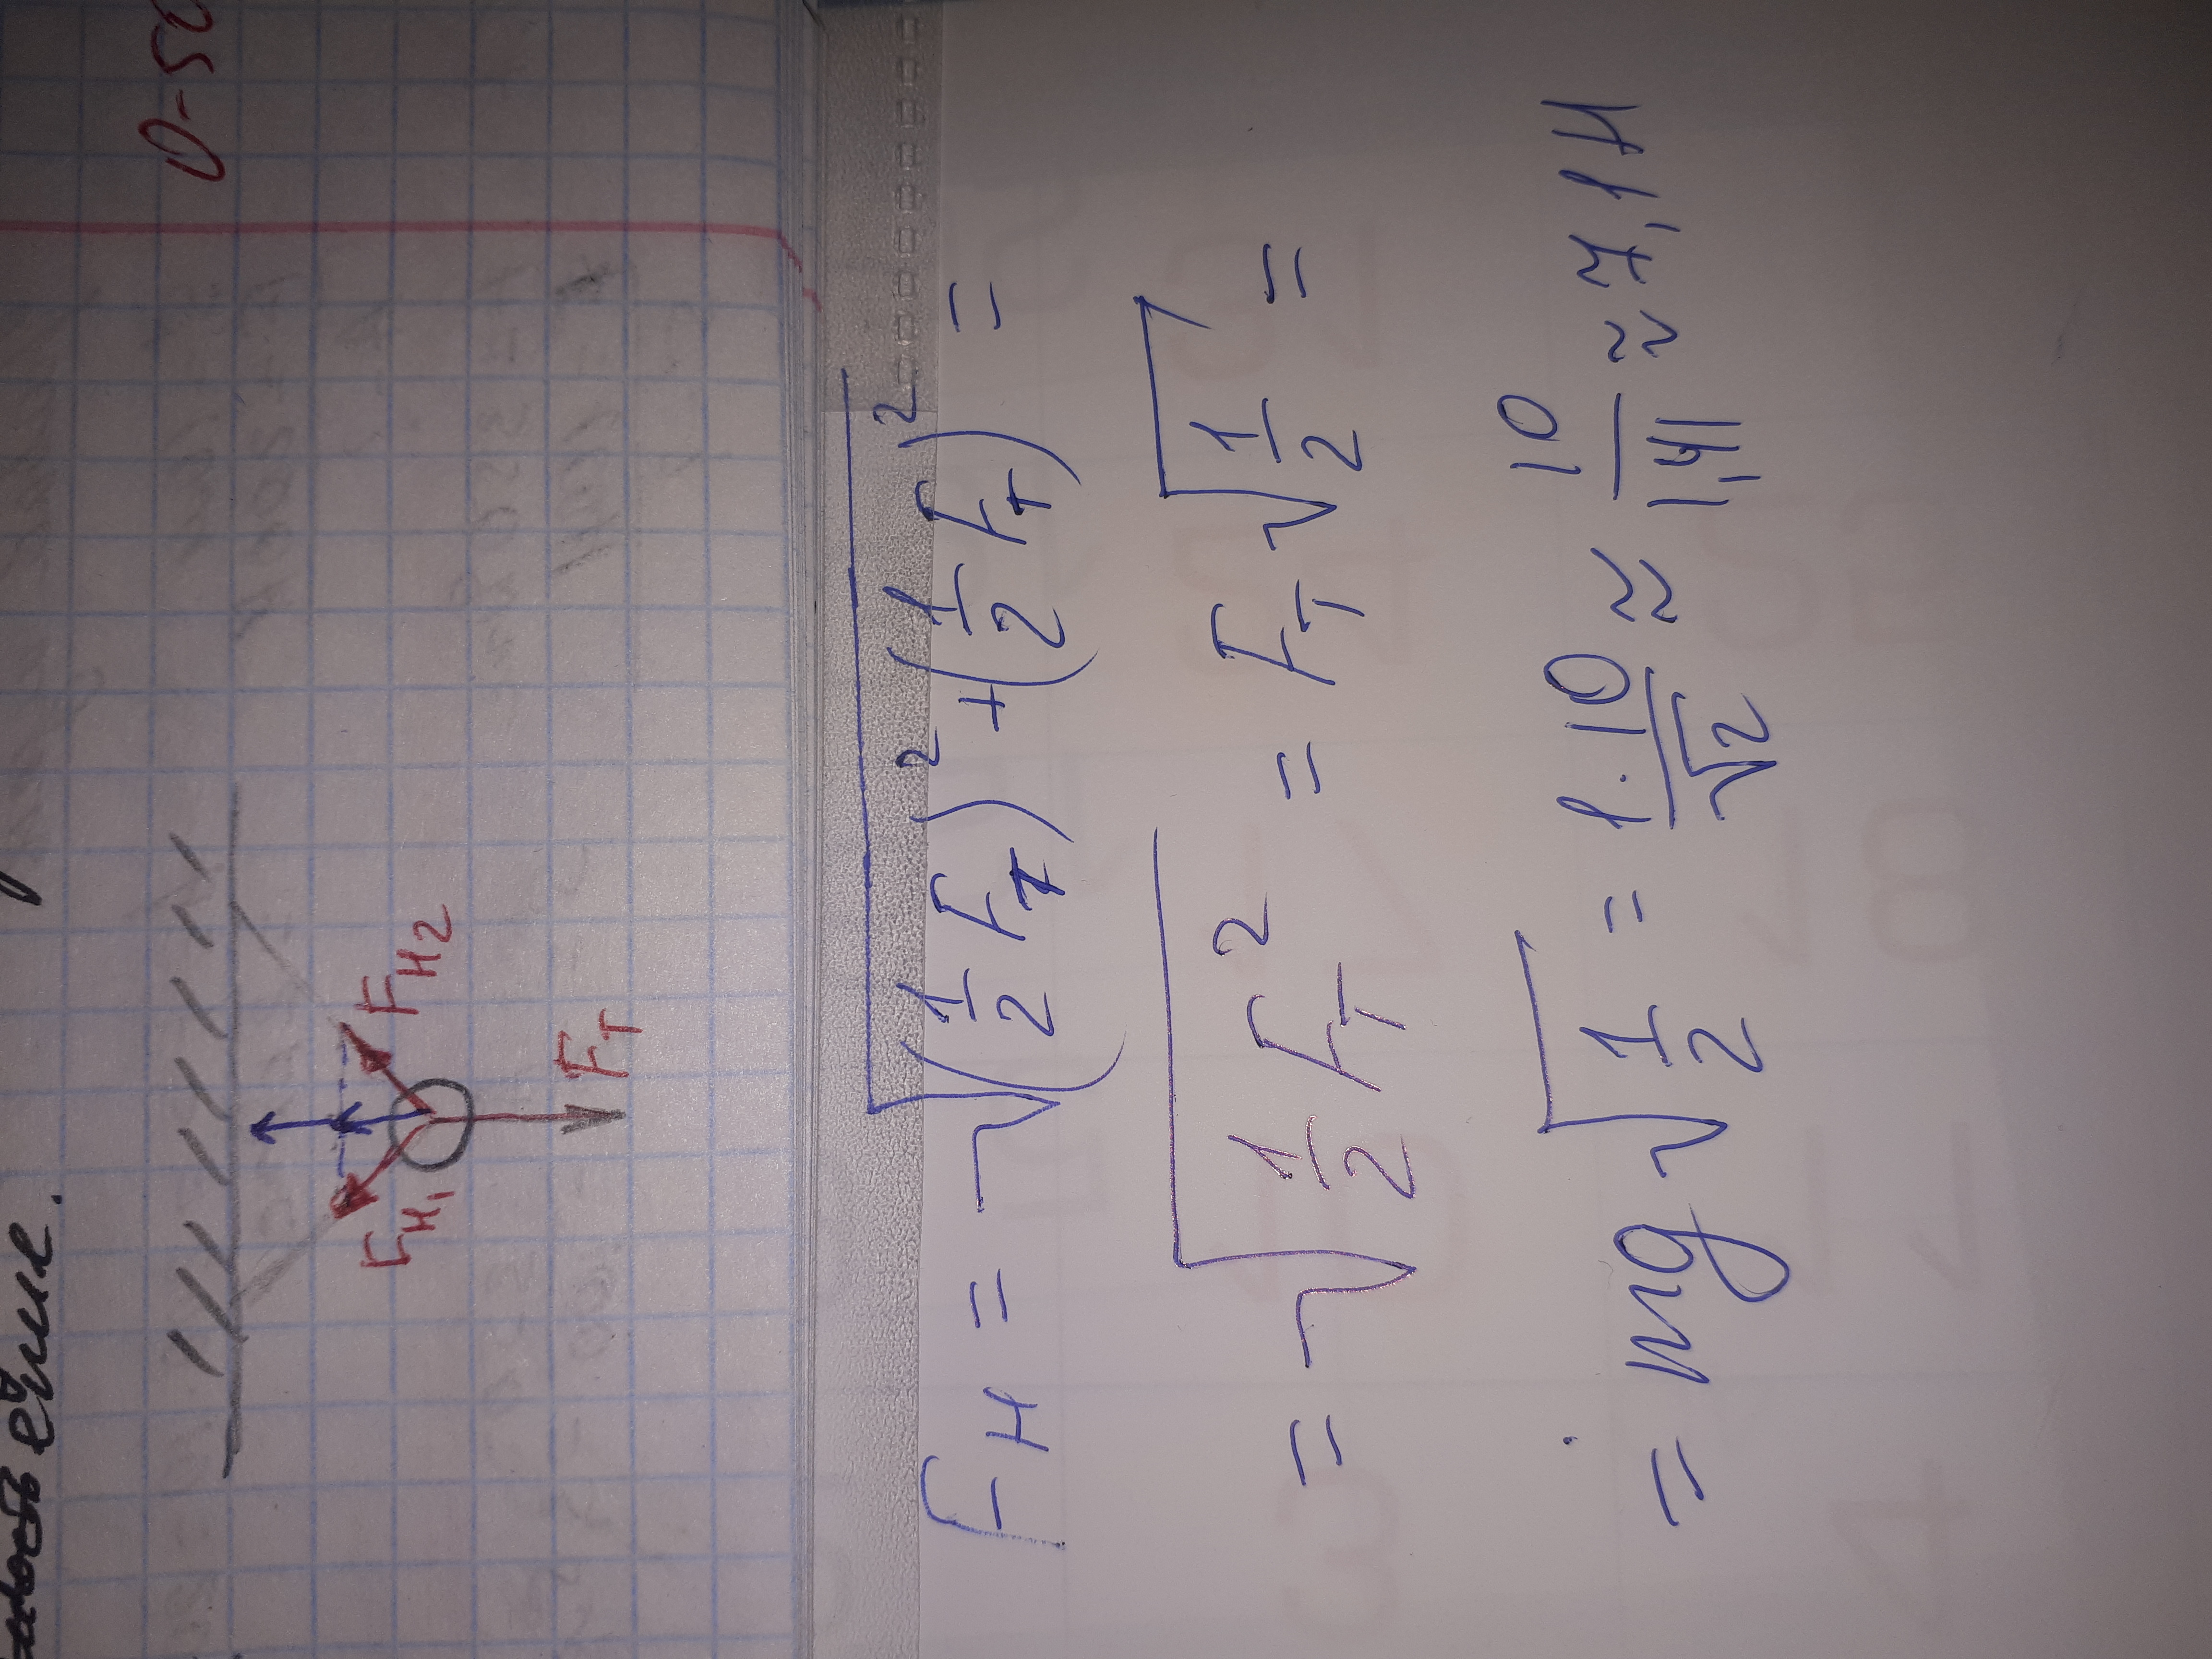 ёлке.
D-50
F_H1 F_H2
F_T
F_H = √((1/2 F_T)² + (1/2 F_T)²) =
= √(1/2 F_T²) = F_T √(1/2) =
= mg √(1/2) = 1·10/√2 ≈ 10/1,41 ≈ 7,1 H